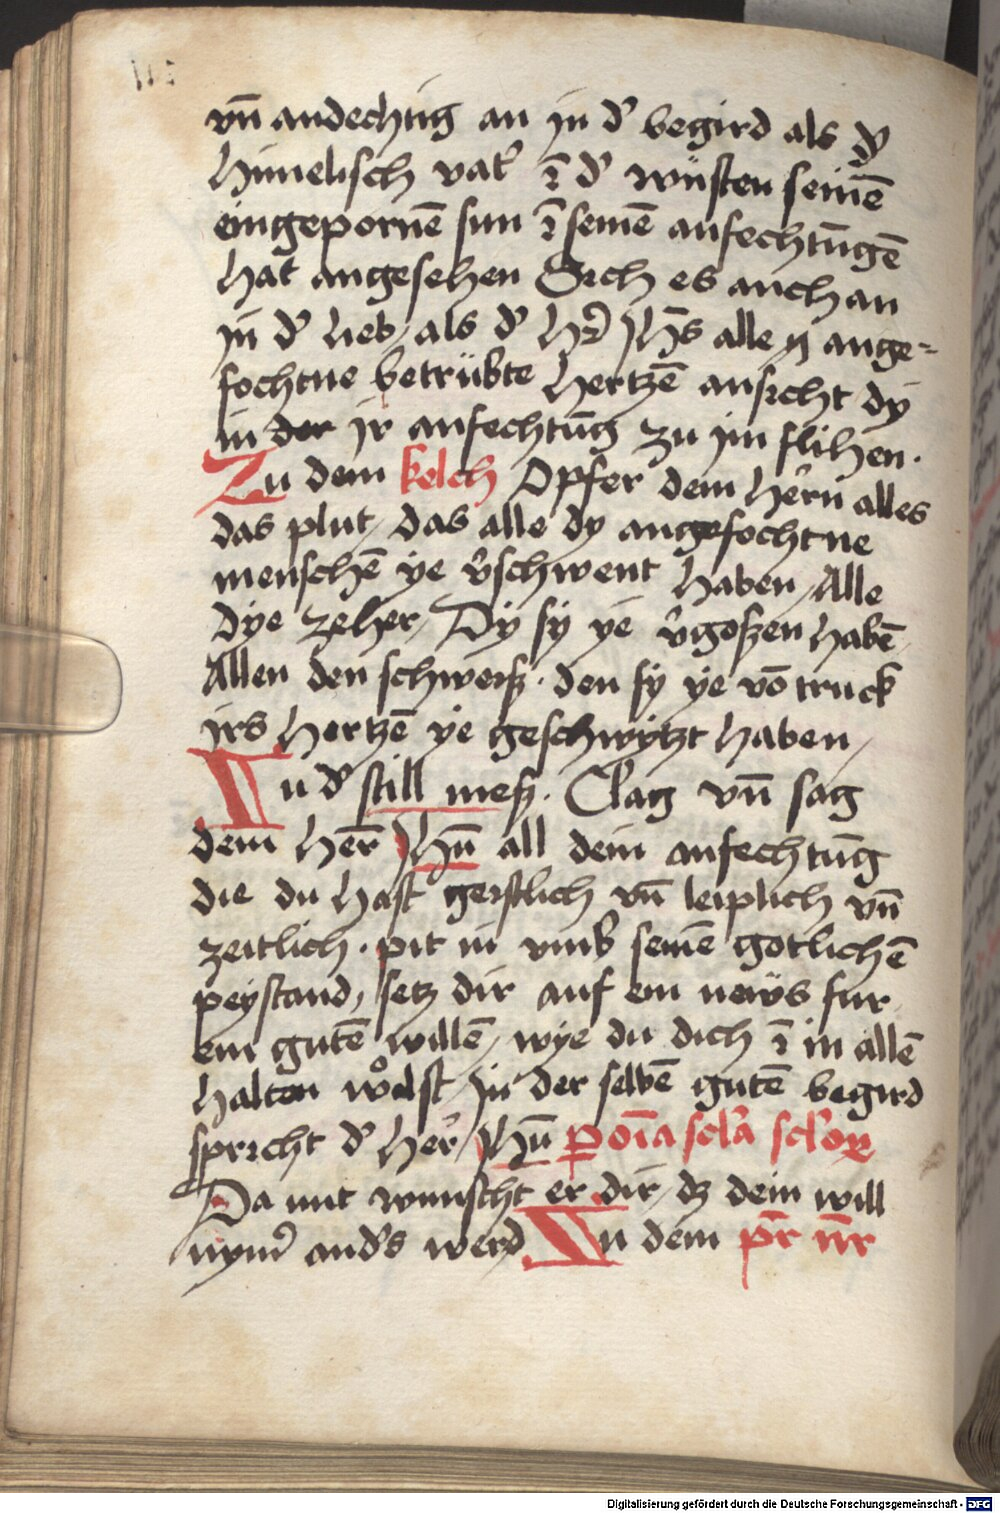 vn̄ andechtig an in d' begird als dy
himelisch vat' ī d' wüsten seinē
eingepornē sun ī seinē anfechtūgē
hat angesehen Sich es auch an
in d' lieb, als d' h'r Jhs alle angefochtne
betrübte hertzē ansicht dy
in der ir anfechtūg zu im flihen.
Zu dem kelch Opfer dem her'n alles
das plut, das alle dy angefochtne
menschē ye v'schwent haben, Alle
dye zeher, Dy sy ye v'goszen habē,
Allen den schweisz. den sy ye vō truck
irs hertzē ye geschwytzt haben,
Zu d' still mesz. Clag vn̄ sag
dem Her̄ Jhū all dein anfechtūg
die du hast geistlich vn̄ leiplich vn̄
zeitlich. pit in vmb seinē gotlichē
peystand, setz dir auf ein neẅs fur
ein gutē willē, wye du dich ī in allē
halten wolst, In der selbē gutē begird
spricht d' her', Jhū p oīa scl'a scl'oꝝ
Da mit wunscht er dir, dz dein will
nym' and's werd Zu dem pr̄ nr̄
Digitalisierung gefördert durch die Deutsche Forschungsgemeinschaft - DFG